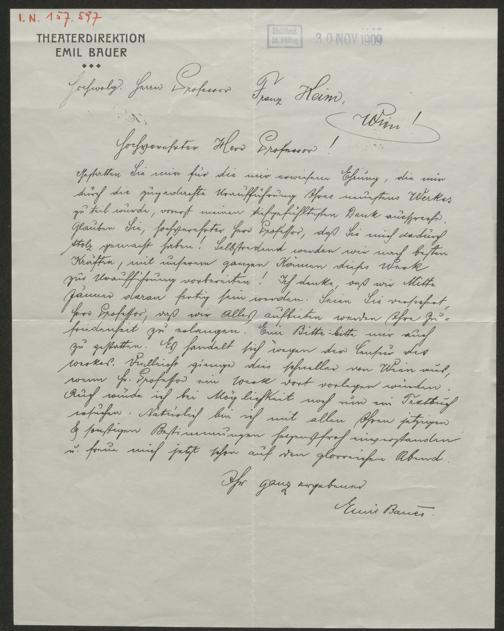 I.N. 157.597
THEATERDIREKTION
EMIL BAUER
30 NOV 1909
Hochwolg. Herrn Professor Franz Heim,
Wien!
Hochverehrter Herr Professor!
Gestatten Sie mir für die mir erwiesene Ehrung, die mir
durch die zugedachte Uraufführung Ihres neuesten Werkes
zu teil wurde, vorerst meinen tiefgefühltesten Dank auszusprech.
Glauben Sie, hochverehrter Herr Professor, daß Sie mich dadurch
stolz gemacht haben! Selbstredend werden wir nach besten
Kräften, mit unserem ganzen Können dieses Werk
zur Uraufführung vorbereiten! Ich denke, daß wir Mitte
Jänner daran fertig sein werden. Seien Sie versichert,
Herr Professor, daß wir Alles aufbieten werden Ihre Zu-
friedenheit zu erlangen. Eine Bitte bitte mir auch
zu gestatten. Es handelt sich wegen der Censur des
Werkes. Vielleicht gienge dies schneller von Wien aus,
wenn H. Professor ein Werk dort vorlegen würden.
Auch würde ich bei Möglichkeit noch um ein Textbuch
ersuchen. Natürlich bin ich mit allen Ihren jetzigen
& sonstigen Bestimmungen einverstanden
u. freue mich jetzt schon auf den glorreichen Abend
Ihr ganz ergebener
Emil Bauer.